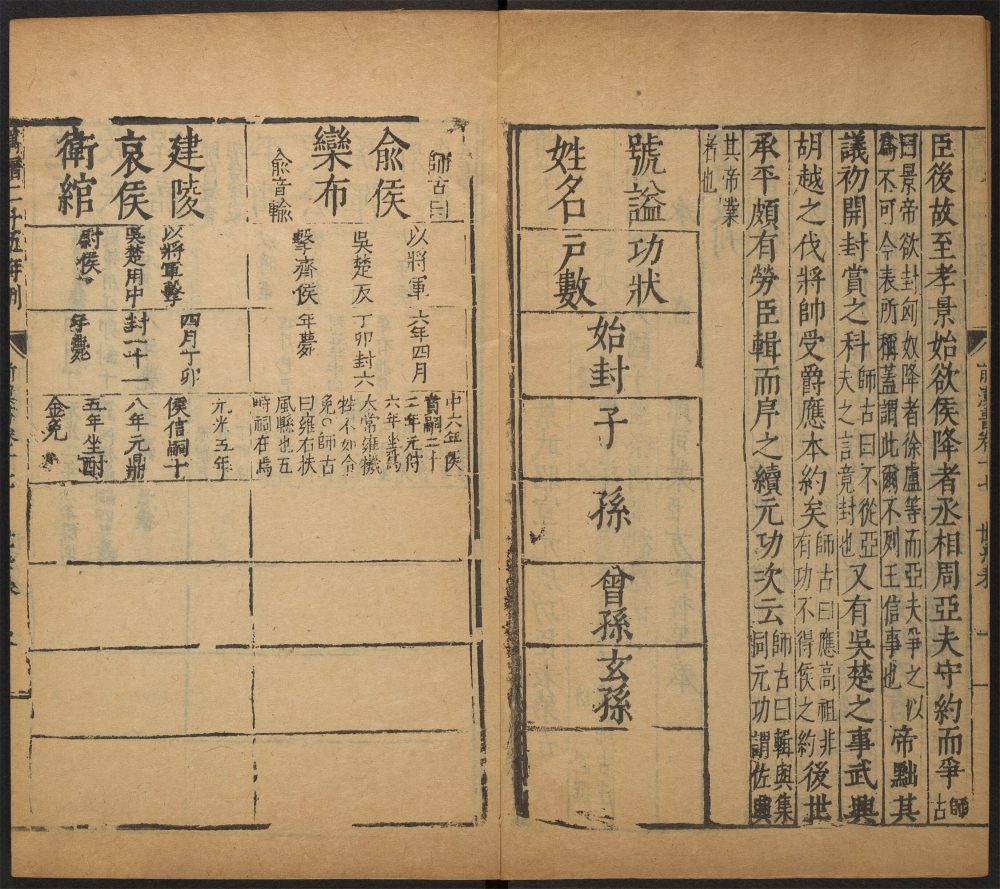 臣後故至孝景始欲侯降者丞相周亞夫守約而爭師古
曰景帝欲封匈奴降者徐盧等而亞夫爭之以
爲不可今表所稱蓋謂此爾不列王信事也帝黜其
議初開封賞之科師古曰不從亞夫之言竟封也又有吳楚之事武興
胡越之伐將帥受爵應本約矣師古曰應高祖非有功不得侯之約後世
承平頗有勞臣輯而序之續元功次云師古曰輯與集同元功謂佐興
其帝業
者也
號謚 功狀
姓名 戸數 始封 子 孫 曾孫 玄孫
師古曰
俞侯
欒布
俞音輸
以將軍
吳楚反
擊齊侯
六年四月
丁卯封六
年薨
中六年侯
賁嗣二十
二年元狩
六年坐爲
太常雍犧
牲不如令
免師古
曰雍右扶
風縣也五
畤祠在焉
建陵
哀侯
衛綰
以將軍擊
吳楚用中
尉侯
四月丁卯
封二十一
年薨
元光五年
侯信嗣十
八年元鼎
五年坐酎
金免
前漢書卷十七 世系表 一